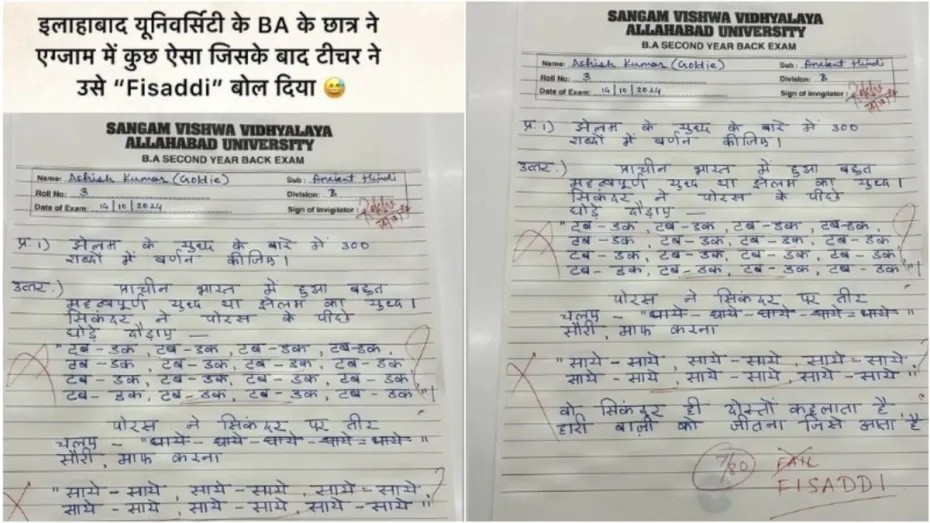 इलाहाबाद यूनिवर्सिटी के BA के छात्र ने
एग्जाम में कुछ ऐसा जिसके बाद टीचर ने
उसे “Fisaddi” बोल दिया 😅
SANGAM VISHWA VIDHYALAYA
ALLAHABAD UNIVERSITY
B.A SECOND YEAR BACK EXAM
Name: Ashish Kumar (Goldie) Sub : Ancient Hindi
Roll No: 3 Division: B
Date of Exam: 14/10/2024 Sign of Invigilator :
प्र. 1) झेलम के युध्द के बारे में 300
शब्दों में वर्णन कीजिए।
उत्तर.) प्राचीन भारत में हुआ बहुत
महत्वपूर्ण युध्द था झेलम का युध्द।
सिकंदर ने पोरस के पीछे
घोड़े दौड़ाए —
"टब-डक, टब-डक, टब-डक, टब-डक,
टब-डक, टब-डक, टब-डक, टब-डक
टब-डक, टब-डक, टब-डक, टब-डक
टब-डक, टब-डक, टब-डक, टब-डक"।
पोरस ने सिकंदर पर तीर
चलाए - "धाये-धाये-धाये-धाये-धाये"
सौरी, माफ करना
"साये-साये, साये-साये, साये-साये
साये-साये, साये-साये, साये-साये"
SANGAM VISHWA VIDHYALAYA
ALLAHABAD UNIVERSITY
B.A SECOND YEAR BACK EXAM
Name: Ashish Kumar (Goldie) Sub : Ancient Hindi
Roll No: 3 Division: B
Date of Exam: 14/10/2024 Sign of Invigilator :
प्र. 1) झेलम के युध्द के बारे में 300
शब्दों में वर्णन कीजिए।
उत्तर.) प्राचीन भारत में हुआ बहुत
महत्वपूर्ण युध्द था झेलम का युध्द।
सिकंदर ने पोरस के पीछे
घोड़े दौड़ाए —
"टब-डक, टब-डक, टब-डक, टब-डक,
टब-डक, टब-डक, टब-डक, टब-डक
टब-डक, टब-डक, टब-डक, टब-डक
टब-डक, टब-डक, टब-डक, टब-डक"।
पोरस ने सिकंदर पर तीर
चलाए - "धाये-धाये-धाये-धाये-धाये"
सौरी, माफ करना
"साये-साये, साये-साये, साये-साये
साये-साये, साये-साये, साये-साये"
वो सिकंदर ही दोस्तों कहलाता है,
हारी बाज़ी को जीतना जिसे आता है
7/80 FAIL
FISADDI